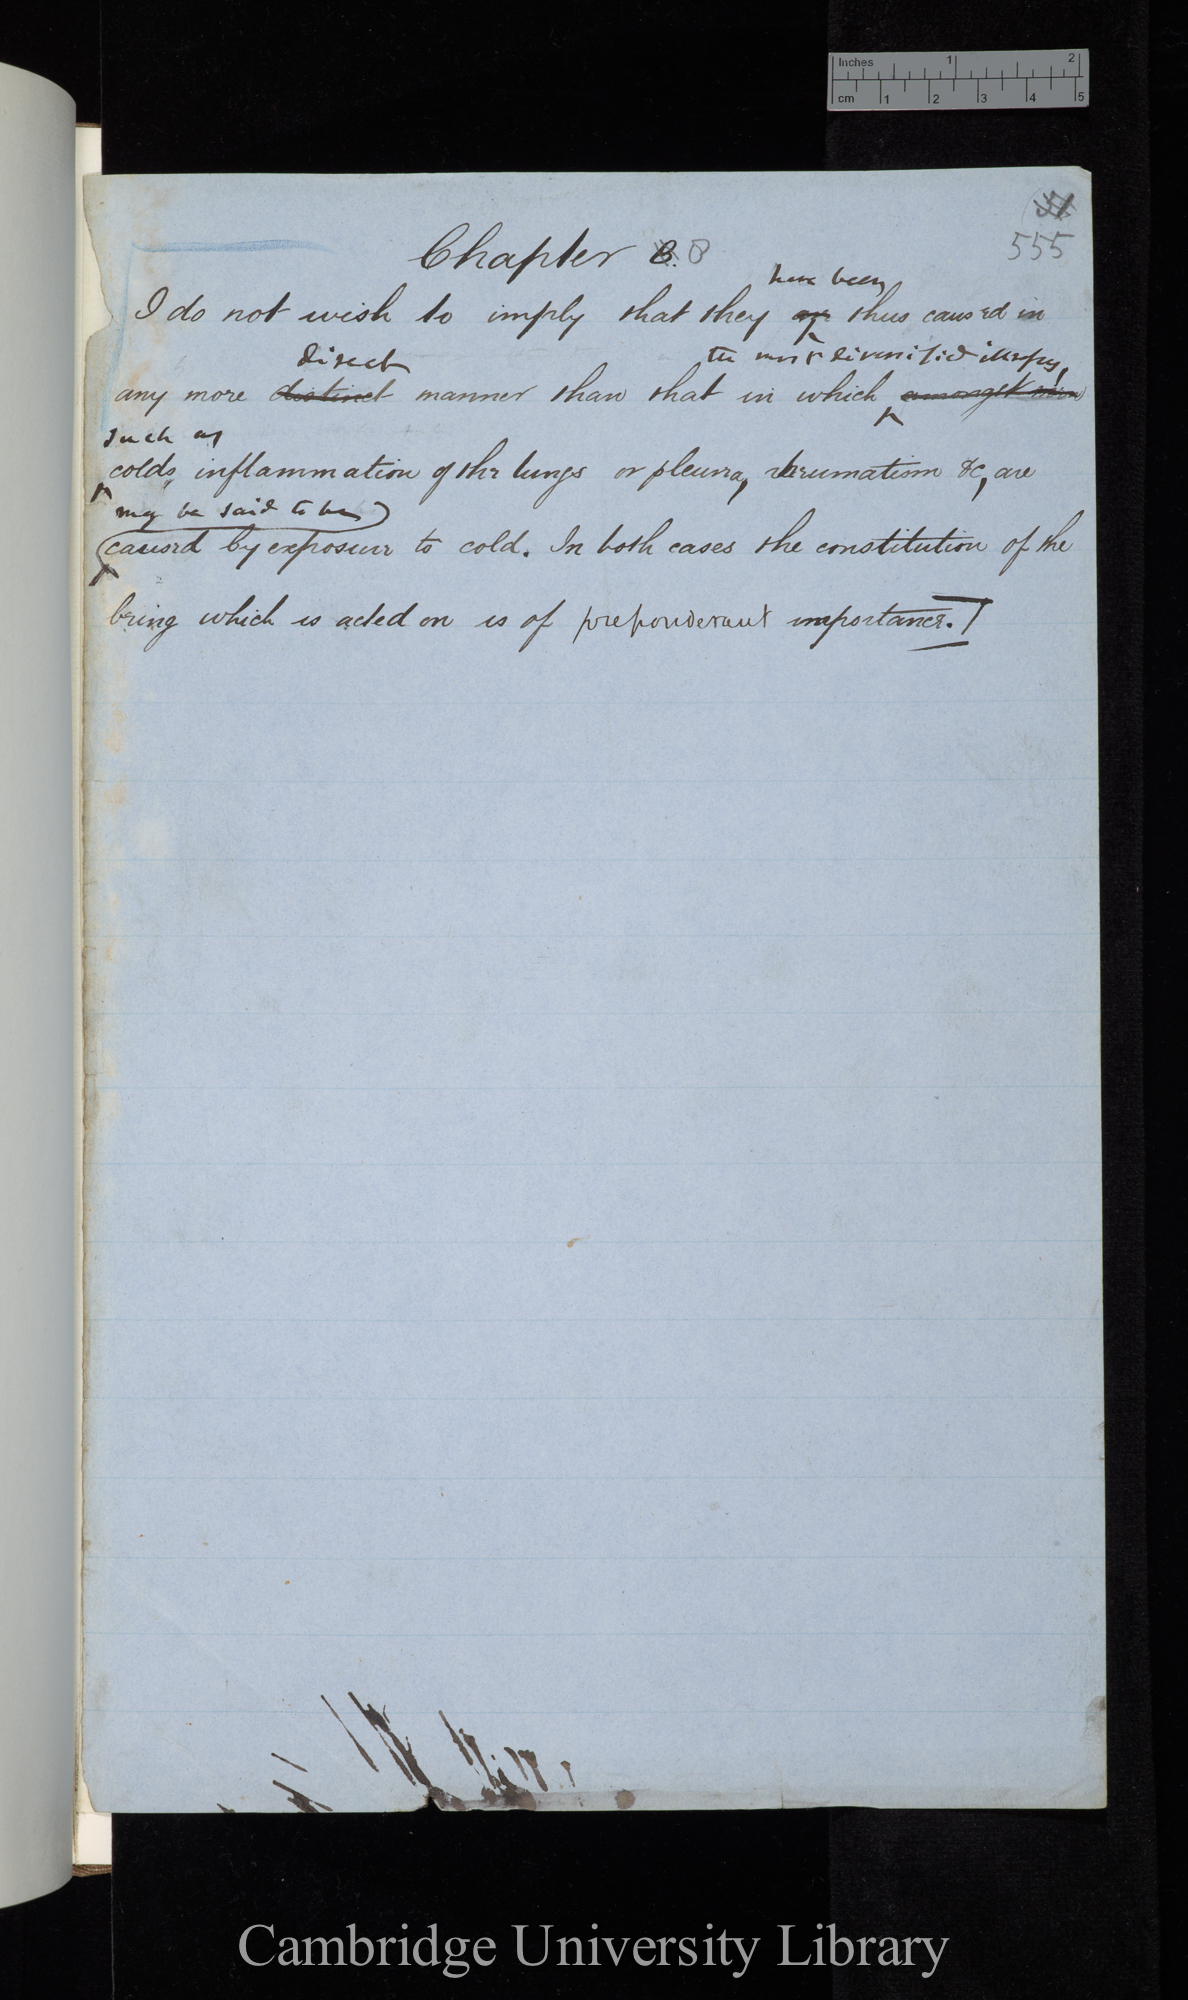 Inches 1 2
cm 1 2 3 4 5
555
Chapter 8. 8
have been
I do not wish to imply that they are thus caused in
direct the most diversified illnesses,
any more distinct manner than that in which amongst men
such as
colds, inflammation of the lungs or pleura, rheumatism &c, are
may be said to be
caused by exposure to cold. In both cases the constitution of the
being which is acted on is of preponderant importance.
Cambridge University Library